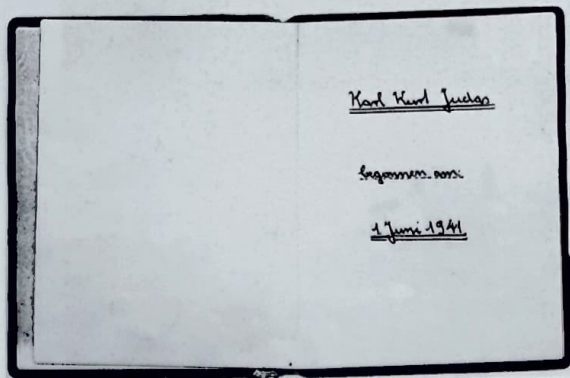 Karl Kurt Judas
begonnen am:
1 Juni 1941